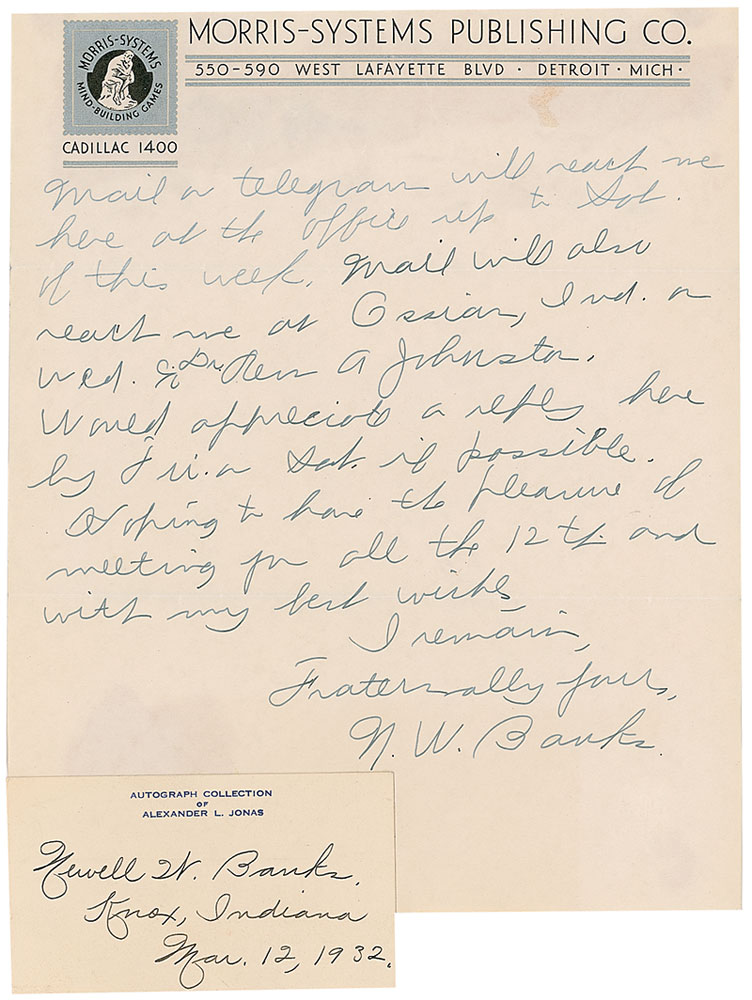 MORRIS-SYSTEMS PUBLISHING CO.
550-590 WEST LAFAYETTE BLVD · DETROIT · MICH ·
MORRIS-SYSTEMS
MIND-BUILDING GAMES
CADILLAC 1400
Mail or telegram will reach me
here at the office up to Sat.
of this week. Mail will also
reach me at Ossian, Ind. on
Wed. c/o Dr. A Johnston.
Would appreciate a reply here
by Fri. or Sat. if possible.
Hoping to have the pleasure of
meeting you all the 12th. and
with my best wishes
I remain,
Fraternally yours,
N. W. Banks.
AUTOGRAPH COLLECTION
OF
ALEXANDER L. JONAS
Newell W. Banks.
Knox, Indiana
Mar. 12, 1932.